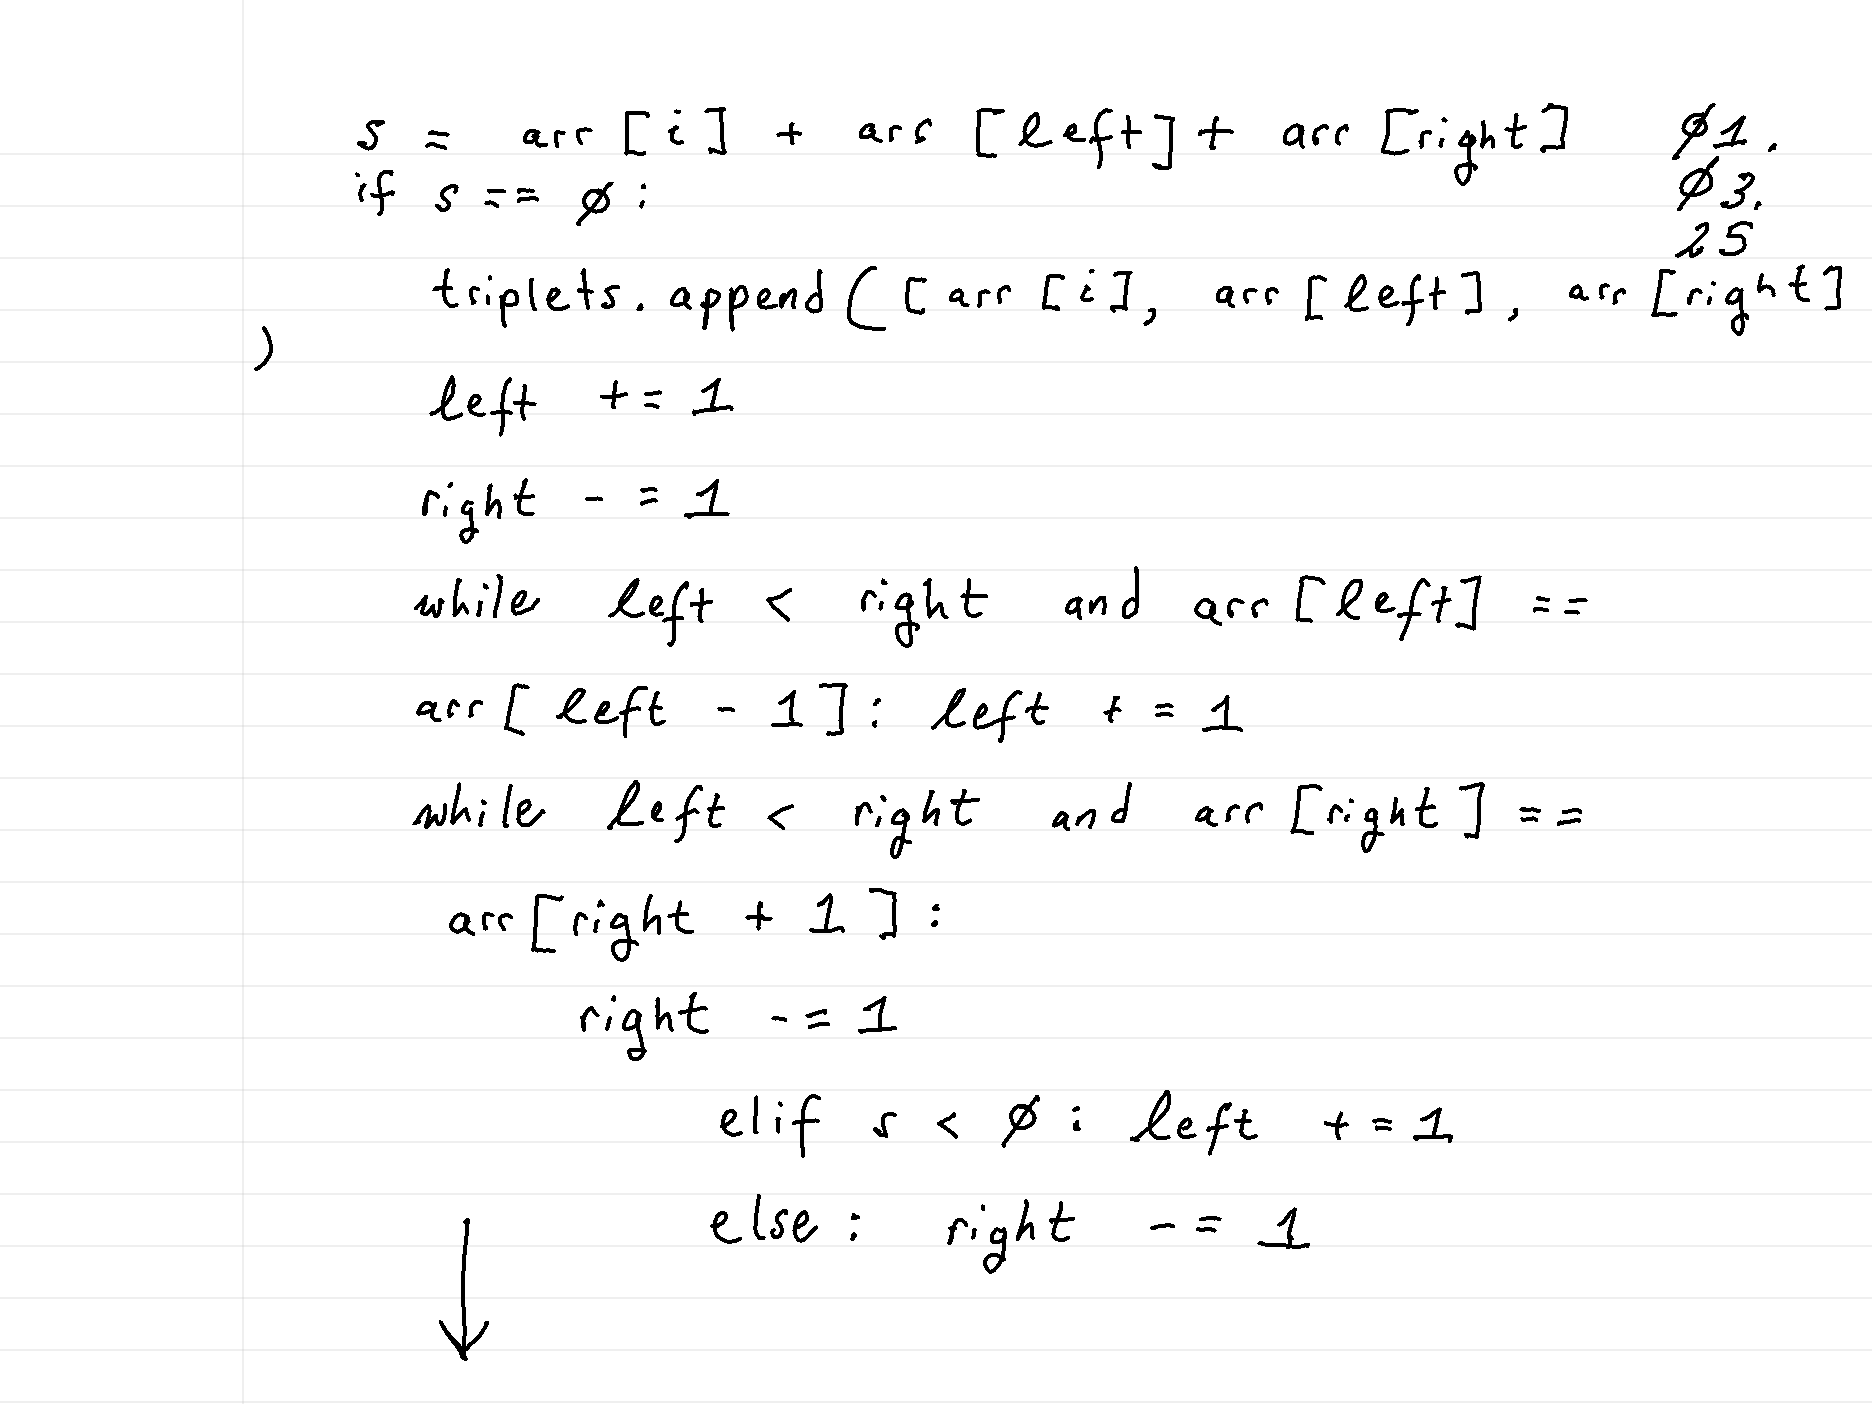 s = arr [i] + arr [left] + arr [right] Ø1.
if s == Ø: Ø3.
25
triplets. append ( [ arr [i], arr [left], arr [right]
)
left += 1
right -= 1
while left < right and arr [left] ==
arr [ left - 1 ]: left += 1
while left < right and arr [right] ==
arr [right + 1 ]:
right -= 1
elif s < Ø: left += 1
else: right -= 1